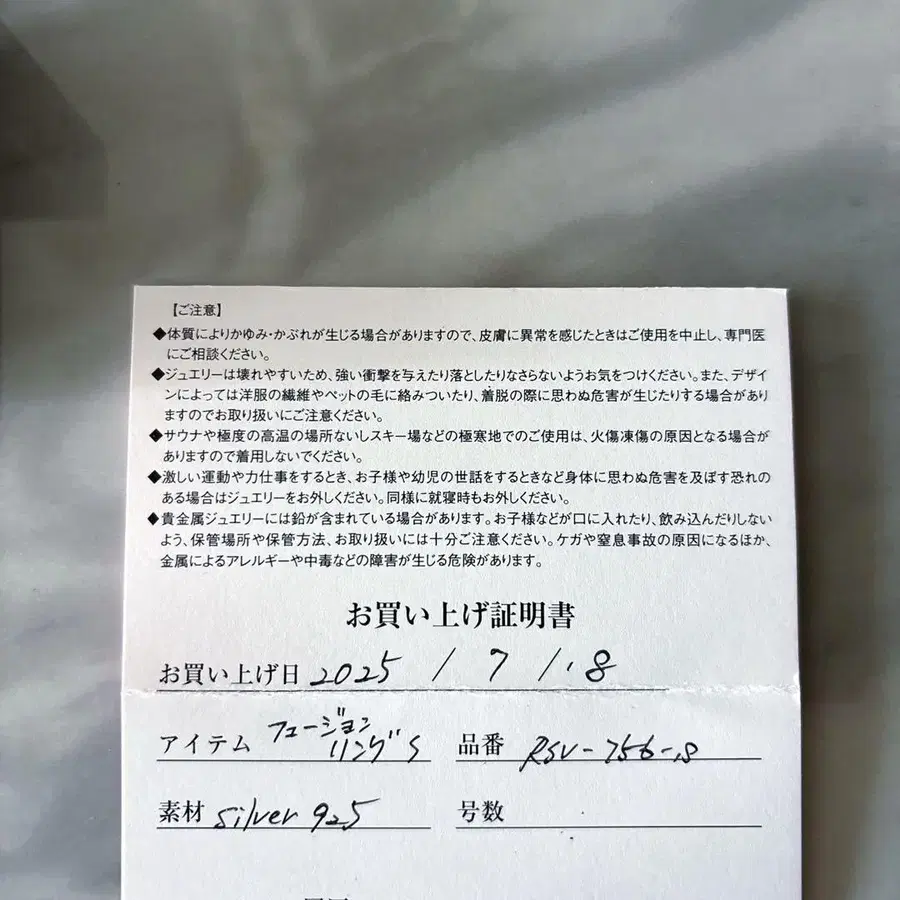 【ご注意】
◆体質によりかゆみ・かぶれが生じる場合がありますので、皮膚に異常を感じたときはご使用を中止し、専門医
にご相談ください。
◆ジュエリーは壊れやすいため、強い衝撃を与えたり落としたりなさらないようお気をつけください。また、デザイ
ンによっては洋服の繊維やペットの毛に絡みついたり、着脱の際に思わぬ危害が生じたりする場合があり
ますのでお取り扱いにご注意ください。
◆サウナや極度の高温の場所ないしスキー場などの極寒地でのご使用は、火傷凍傷の原因となる場合が
ありますので着用しないでください。
◆激しい運動や力仕事をするとき、お子様や幼児の世話をするときなど身体に思わぬ危害を及ぼす恐れの
ある場合はジュエリーをお外しください。同様に就寝時もお外しください。
◆貴金属ジュエリーには鉛が含まれている場合があります。お子様などが口に入れたり、飲み込んだりしない
よう、保管場所や保管方法、お取り扱いには十分ご注意ください。ケガや窒息事故の原因になるほか、
金属によるアレルギーや中毒などの障害が生じる危険があります。
お買い上げ証明書
お買い上げ日 2025 / 7 / 8
アイテム フュージョン リング S 品番 RSV-756-S
素材 silver 925 号数